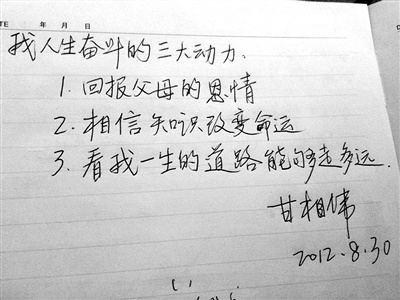 年 月 日
我人生奋斗的三大动力.
1. 回报父母的恩情
2. 相信知识改变命运
3. 看我一生的道路能够走多远.
甘相伟
2012.8.30